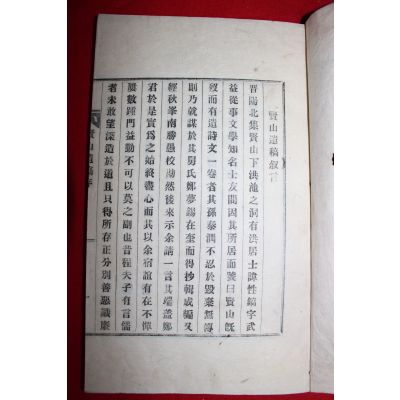 賢山遺稿叙言
晋陽北集賢山下洪池之洞有洪居士諱性鎬字武
益從事文學知名士友間因其所居而號曰賢山旣
歿而有遺詩文一卷者其孫泰潤不忍於毁棄無傳
則乃就謀於其舅氏鄭夢錫在奎而得抄輯成編又
經秋峯南勝愚校勘然後來示余請一言其端盖鄭
君於是實爲之始終盡心而其以余宿誼有在不憚
屢數踵門益勤不可以莫之副也昔程夫子有言儒
者未敢望深造於道且只得所存正分別善惡識廉
賢山遺稿序